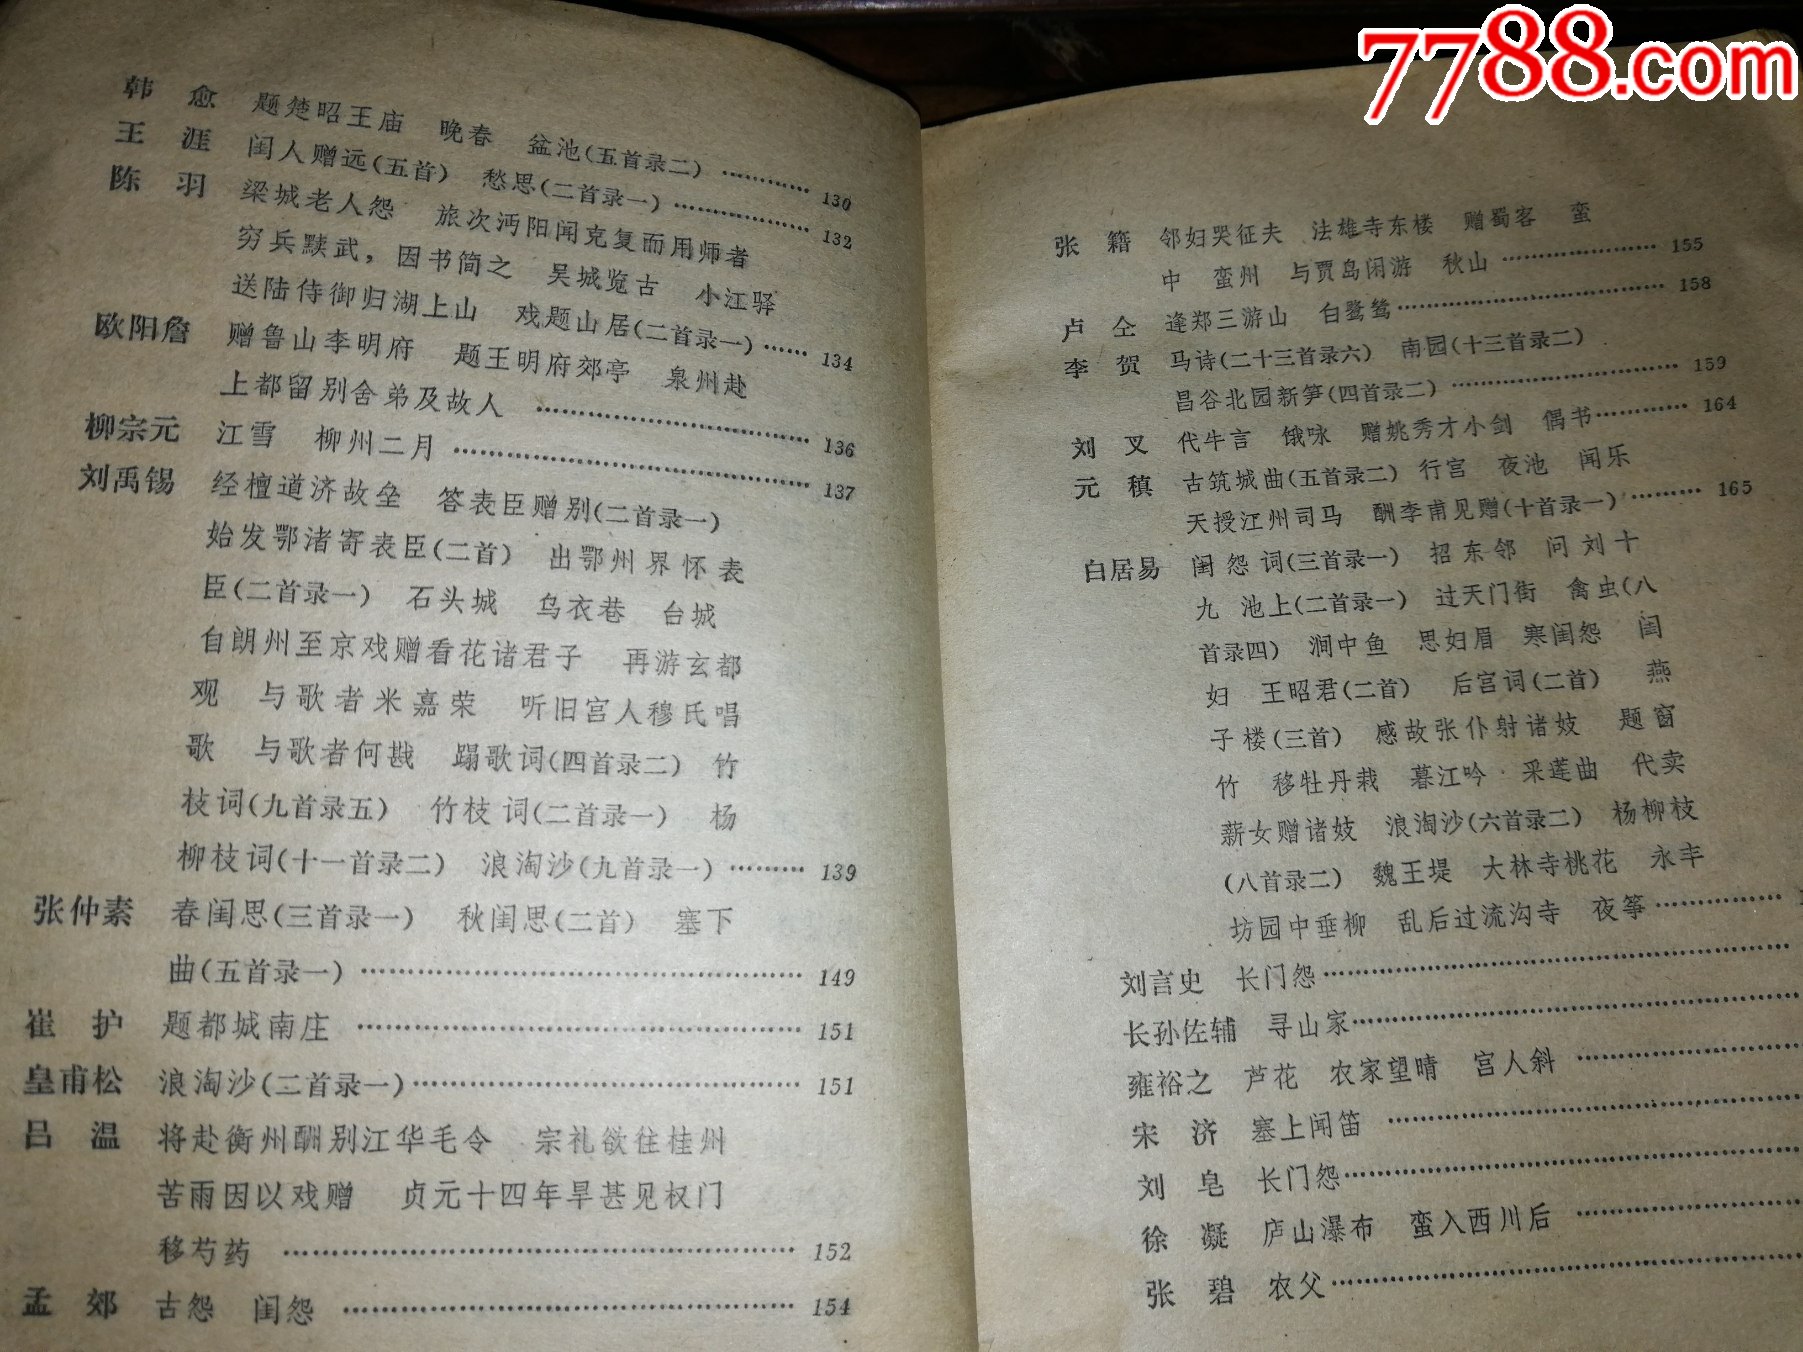 7788.com
韩 愈 题楚昭王庙 晚春 盆池(五首录二)…………130
王 涯 闺人赠远(五首) 愁思(二首录一)………………132
陈 羽 梁城老人怨 旅次沔阳闻克复而用师者
穷兵黩武，因书简之 吴城览古 小江驿
送陆侍御归湖上山 戏题山居(二首录一)……134
欧阳詹 赠鲁山李明府 题王明府郊亭 泉州赴
上都留别舍弟及故人 …………………………136
柳宗元 江雪 柳州二月……………………………………137
刘禹锡 经檀道济故垒 答表臣赠别(二首录一)
始发鄂渚寄表臣(二首) 出鄂州界怀表
臣(二首录一) 石头城 乌衣巷 台城
自朗州至京戏赠看花诸君子 再游玄都
观 与歌者米嘉荣 听旧宫人穆氏唱
歌 与歌者何戡 蹋歌词(四首录二) 竹
枝词(九首录五) 竹枝词(二首录一) 杨
柳枝词(十一首录二) 浪淘沙(九首录一)………139
张仲素 春闺思(三首录一) 秋闺思(二首) 塞下
曲(五首录一)……………………………………………149
崔 护 题都城南庄 ……………………………………………151
皇甫松 浪淘沙(二首录一)………………………………………151
吕 温 将赴衡州酬别江华毛令 宗礼欲往桂州
苦雨因以戏赠 贞元十四年旱甚见权门
移芍药 ……………………………………………………152
孟 郊 古怨 闺怨 ………………………………………………154
张 籍 邻妇哭征夫 法雄寺东楼 赠蜀客 蛮
中 蛮州 与贾岛闲游 秋山………………155
卢 仝 逢郑三游山 白鹭鸶…………………………158
李 贺 马诗(二十三首录六) 南园(十三首录二)
昌谷北园新笋(四首录二)………………………159
刘 叉 代牛言 饿咏 赠姚秀才小剑 偶书…………164
元 稹 古筑城曲(五首录二) 行宫 夜池 闻乐
天授江州司马 酬李甫见赠(十首录一)………165
白居易 闺怨词(三首录一) 招东邻 问刘十
九 池上(二首录一) 过天门街 禽虫(八
首录四) 涧中鱼 思妇眉 寒闺怨 闺
妇 王昭君(二首) 后宫词(二首) 燕
子楼(三首) 感故张仆射诸妓 题窗
竹 移牡丹栽 暮江吟 采莲曲 代卖
薪女赠诸妓 浪淘沙(六首录二) 杨柳枝
(八首录二) 魏王堤 大林寺桃花 永丰
坊园中垂柳 乱后过流沟寺 夜筝……………1
刘言史 长门怨………………………………………………
长孙佐辅 寻山家……………………………………………
雍裕之 芦花 农家望晴 宫人斜 ……………………
宋 济 塞上闻笛 …………………………………………
刘 皂 长门怨………………………………………………
徐 凝 庐山瀑布 蛮入西川后 ……………………
张 碧 农父…………………………………………………